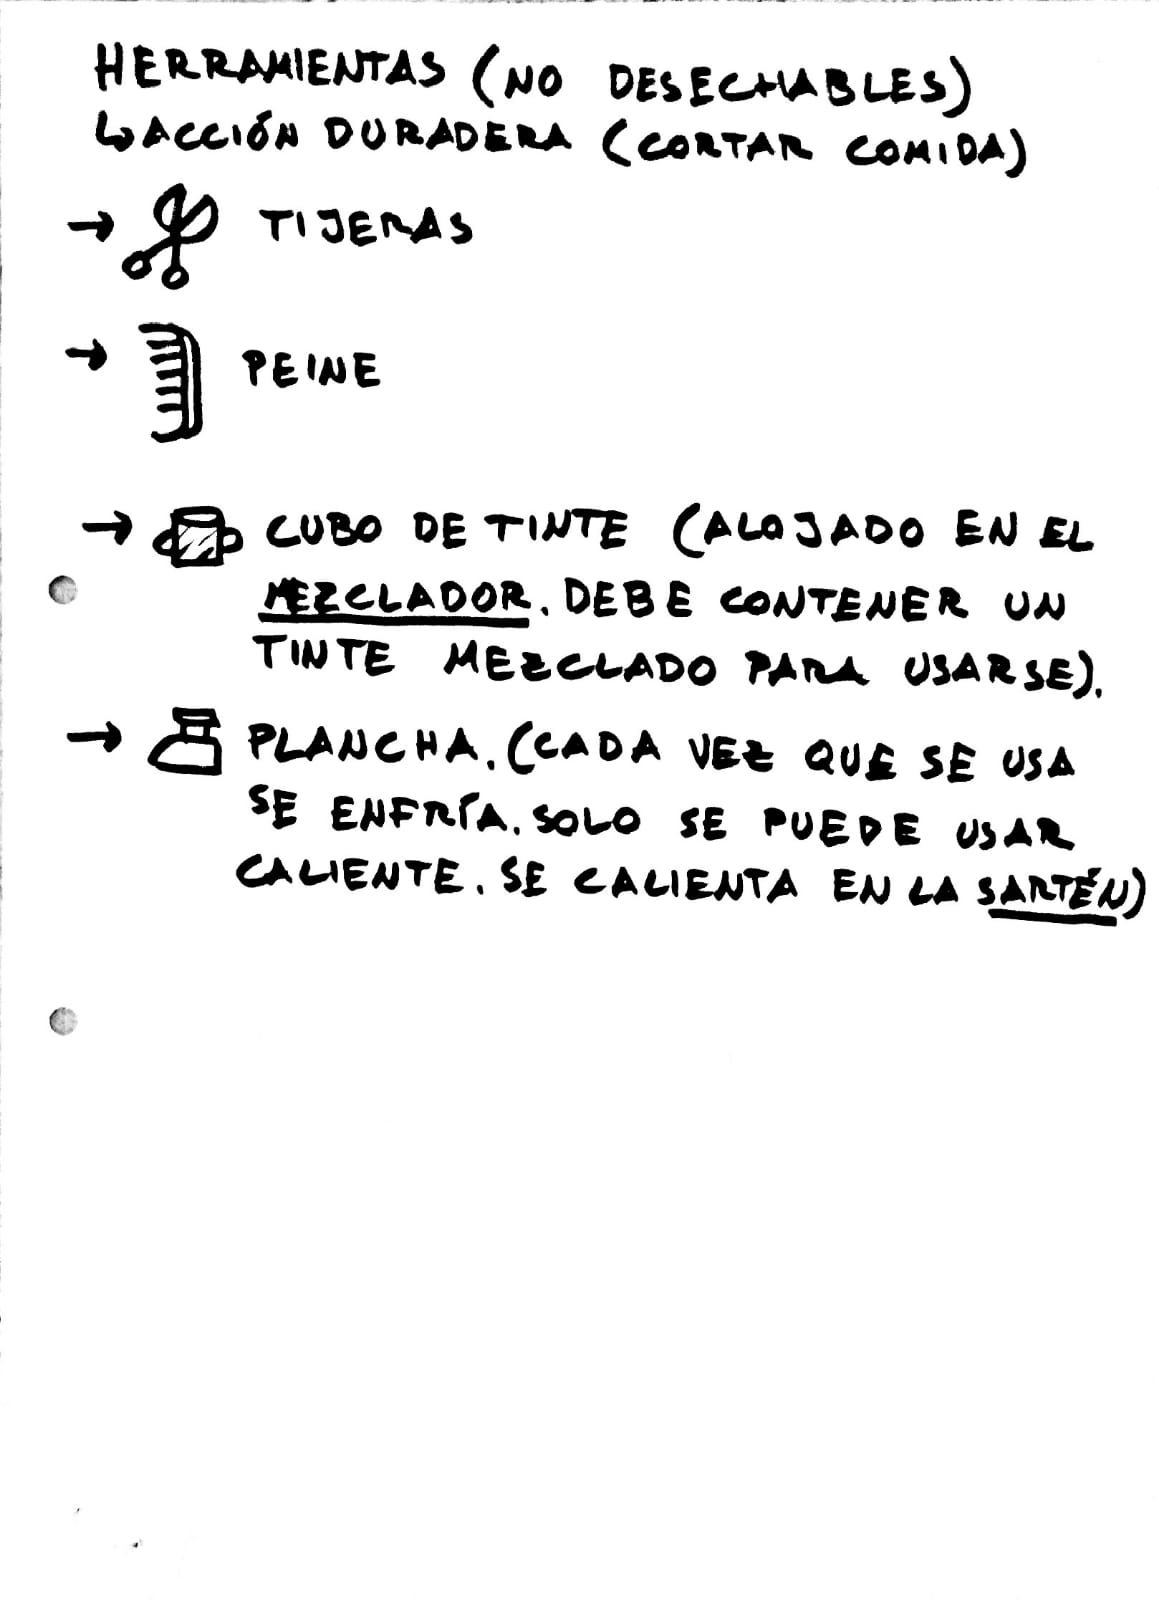 HERRAMIENTAS (NO DESECHABLES)
↳ ACCIÓN DURADERA (CORTAR COMIDA)
→ TIJERAS
→ PEINE
→ CUBO DE TINTE (ALOJADO EN EL
MEZCLADOR. DEBE CONTENER UN
TINTE MEZCLADO PARA USARSE).
→ PLANCHA. (CADA VEZ QUE SE USA
SE ENFRÍA. SOLO SE PUEDE USAR
CALIENTE. SE CALIENTA EN LA SARTÉN)